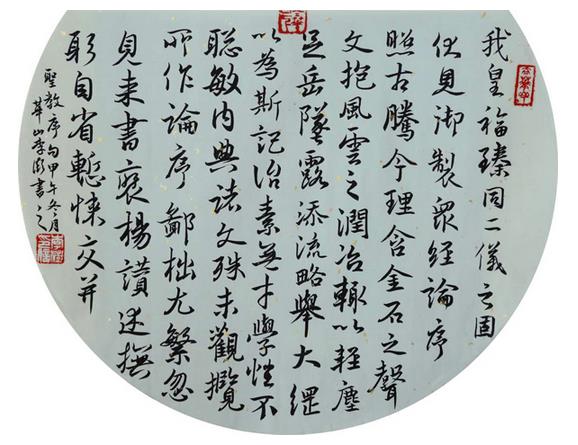 我皇福臻同二儀之固
伏見御製衆經論序
照古騰今理含金石之聲
文抱風雲之潤治輙以輕塵
足岳墜露添流略舉大綱
以為斯記治素無才學性不
聪敏内典諸文殊未觀攬
所作論序鄙拙尤繁忽
見来書褒揚讃述撫
躬自省慙悚交并
聖教序句甲午冬月
華山李書之